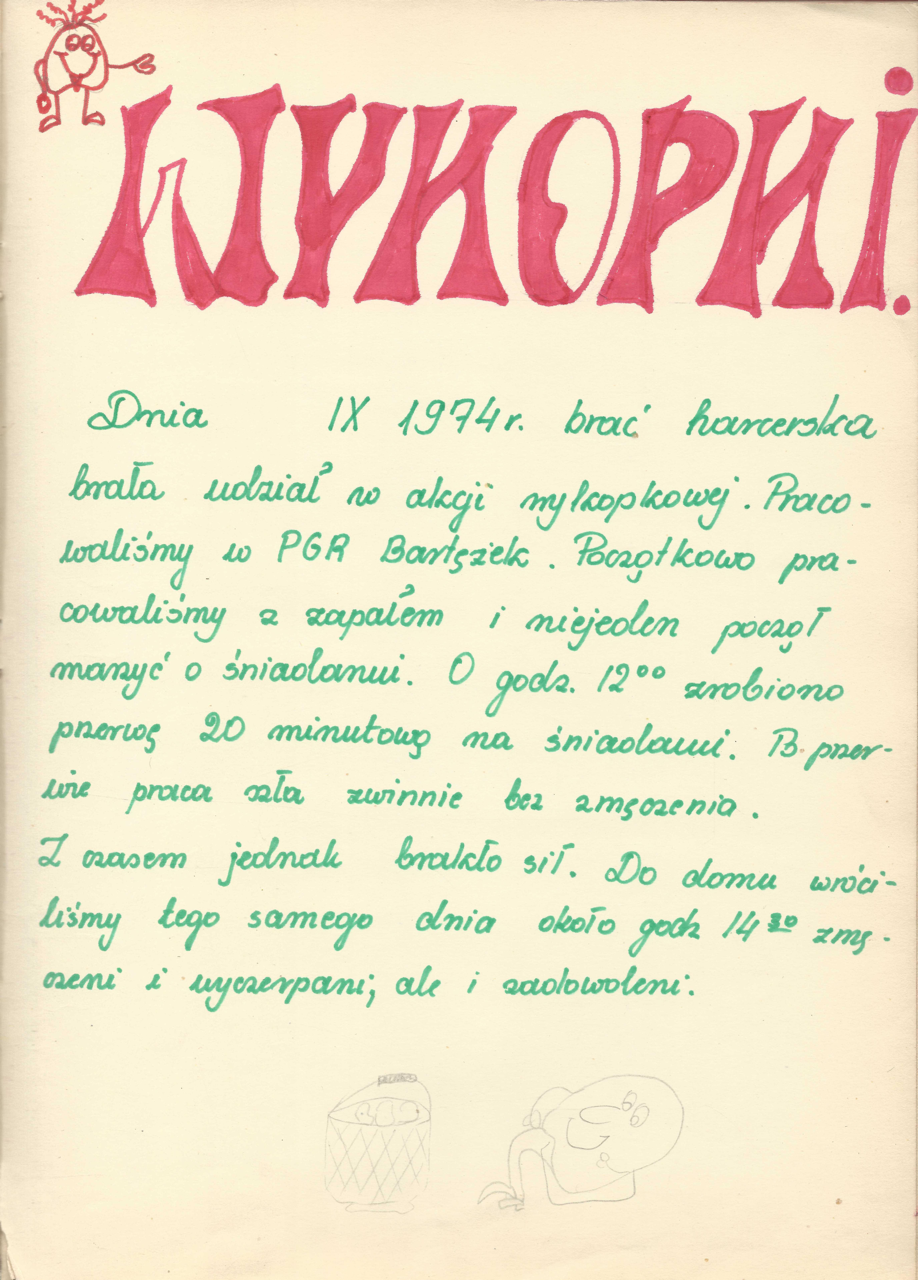 WYKOPKI.
Dnia IX 1974r. brać harcerska
brała udział w akcji wykopkowej. Praco-
waliśmy w PGR Bartężek. Początkowo pra-
cowaliśmy z zapałem i niejeden począł
marzyć o śniadaniu. O godz. 12⁰⁰ zrobiono
przerwę 20 minutową na śniadanie. Po przer-
wie praca szła zwinnie bez zmęczenia.
Z czasem jednak brakło sił. Do domu wróci-
liśmy tego samego dnia około godz 14³⁰ zmę-
czeni i wyczerpani, ale i zadowoleni.